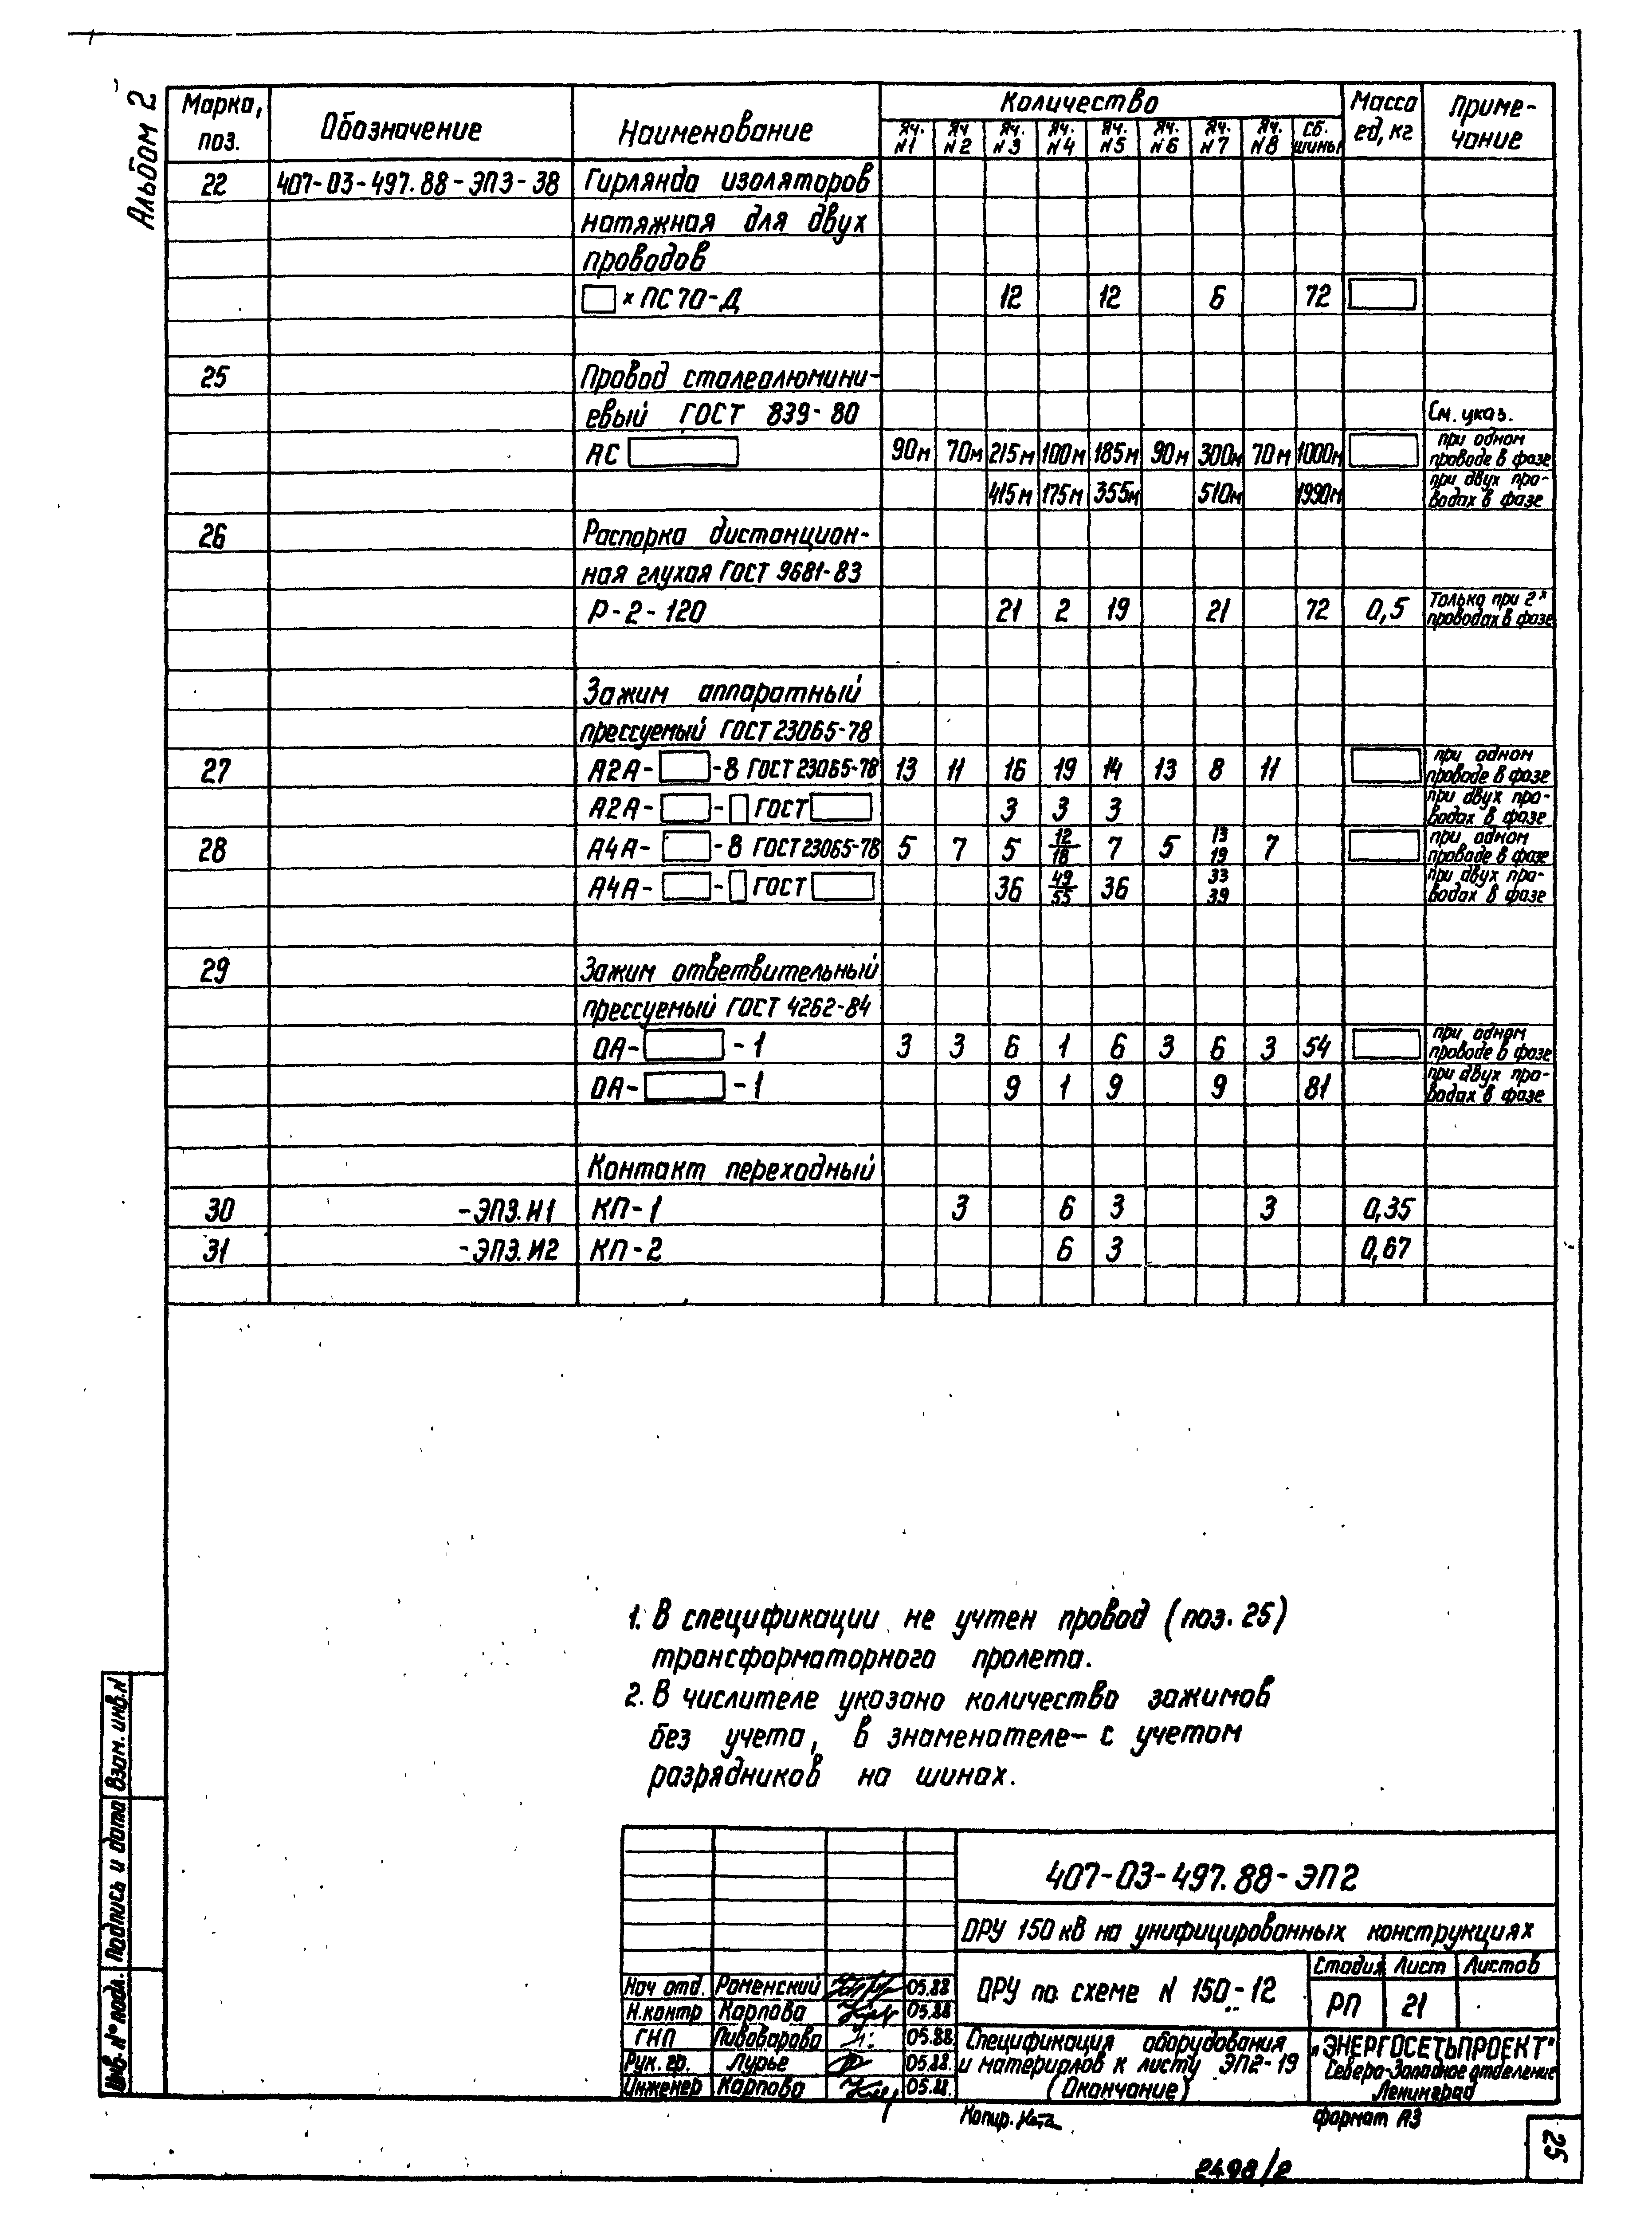 Альбом 2
Марка, поз. Обозначение Наименование Количество Масса ед, кг Приме-чание
Яч. N1 Яч N2 Яч. N3 Яч. N4 Яч. N5 Яч. N6 Яч. N7 Яч. N8 Сб. шины
22 407-03-497.88-ЭП3-38 Гирлянда изоляторов
натяжная для двух
проводов
× ПС 70-Д 12 12 6 72
25 Провод сталеалюмини-
евый ГОСТ 839-80 См. указ.
АС 90м 70м 215м 100м 185м 90м 300м 70м 1000м при одном проводе в фазе
415м 175м 355м 510м 1990м при двух про-водах в фазе
26 Распорка дистанцион-
ная глухая ГОСТ 9681-83
Р-2-120 21 2 19 21 72 0,5 Только при 2х проводах в фазе
Зажим аппаратный
прессуемый ГОСТ 23065-78
27 А2А- -8 ГОСТ 23065-78 13 11 16 19 14 13 8 11 при одном проводе в фазе
А2А- - ГОСТ 3 3 3 при двух про-водах в фазе
28 А4А- -8 ГОСТ 23065-78 5 7 5 12/18 7 5 13/19 7 при одном проводе в фазе
А4А- - ГОСТ 36 49/55 36 33/39 при двух про-водах в фазе
29 Зажим ответвительный
прессуемый ГОСТ 4262-84
ОА- -1 3 3 6 1 6 3 6 3 54 при одном проводе в фазе
ОА- -1 9 1 9 9 81 при двух про-водах в фазе
Контакт переходный
30 -ЭП3.И1 КП-1 3 6 3 3 0,35
31 -ЭП3.И2 КП-2 6 3 0,67
1. В спецификации не учтен провод (поз. 25)
трансформаторного пролета.
2. В числителе указано количество зажимов
без учета, в знаменателе- с учетом
разрядников на шинах.
407-03-497.88-ЭП2
ОРУ 150 кВ на унифицированных конструкциях
Нач отд. Роменский 05.88
Н.контр Карпова 05.88
ГНП Пивоварова 05.88
Рук. гр. Лурье 05.88.
Инженер Карпова 05.88.
ОРУ по схеме N 150-12
Стадия Лист Листов
РП 21
Спецификация оборудования
и материалов к листу ЭП2-19
(Окончание)
"ЭНЕРГОСЕТЬПРОЕКТ"
Северо-Западное отделение
Ленинград
Копир. формат А3
Инв. N° подл. Подпись и дата Взам. инв.N
2498/2
25